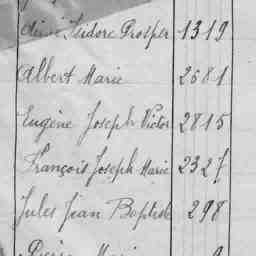 Aimé Isidore Prosper 1319
Albert Marie 2681
Eugène Joseph Victor 2815
François Joseph Marie 2327
Jules Jean Baptiste 298